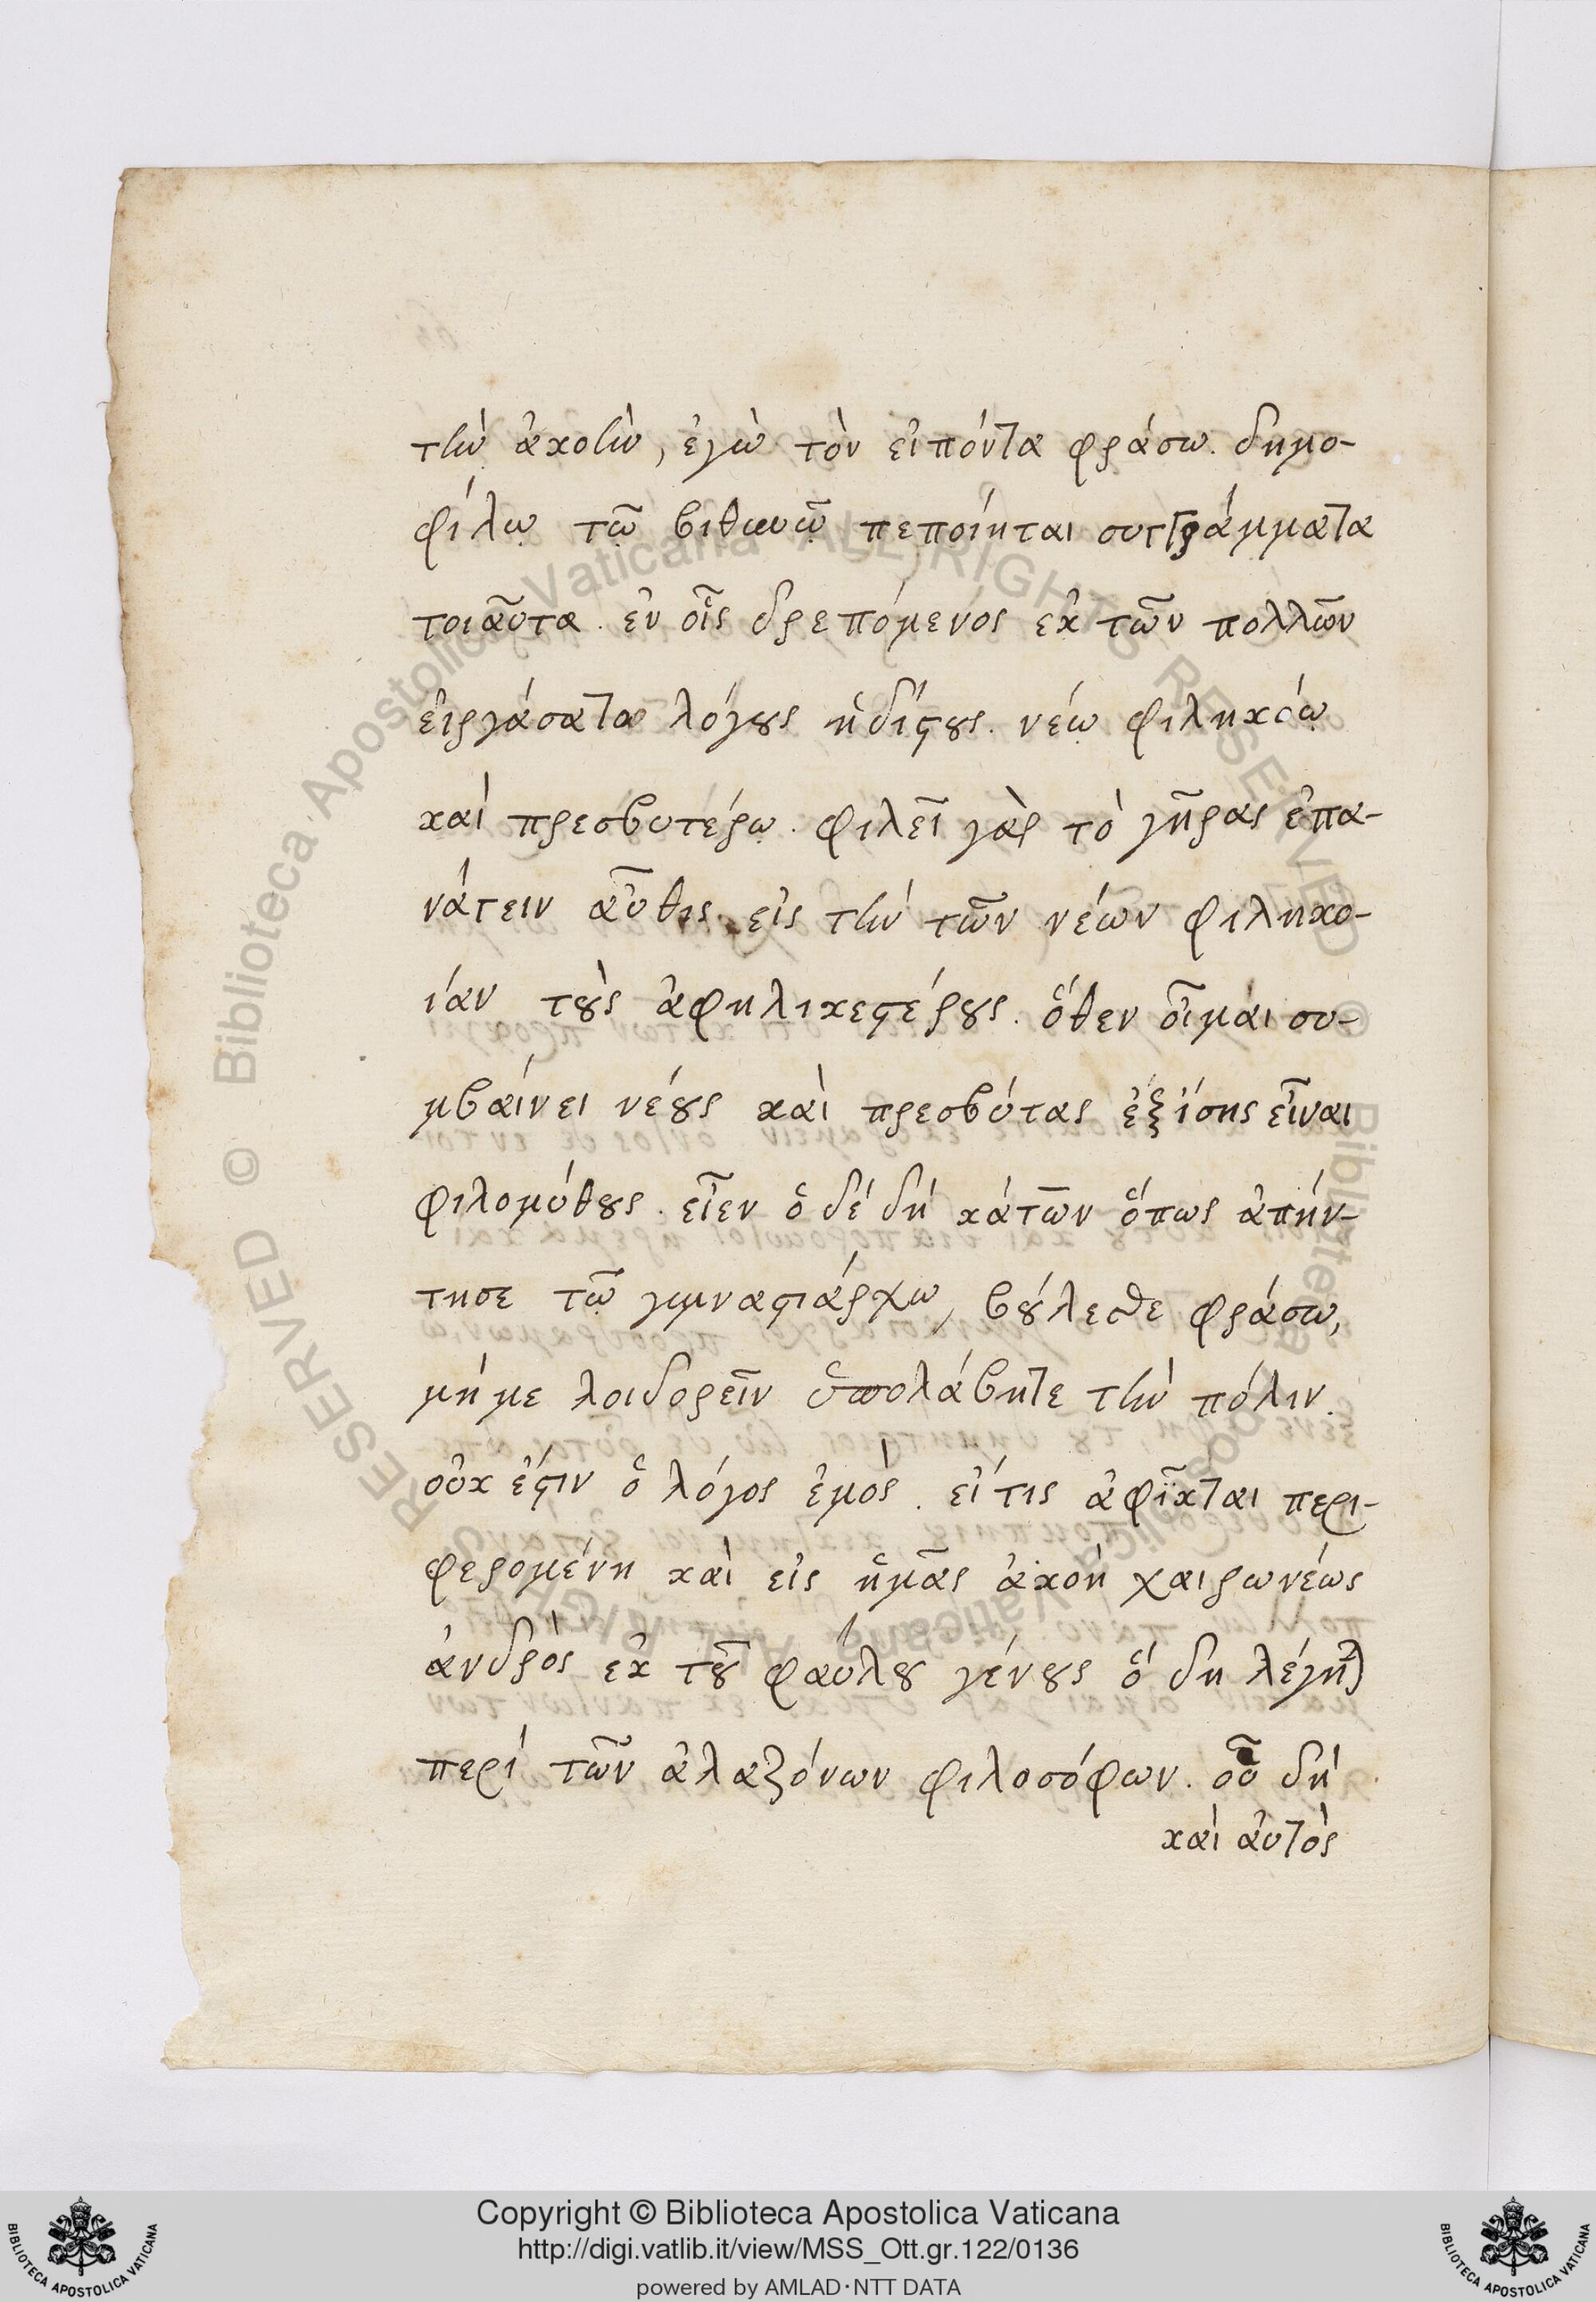 τὴν ἀκοὴν, ἐγὼ τὸν εἰπόντα φράσω. δημο-
φίλῳ τῷ βιθυνῷ πεποίηται συγγράμματα
τοιαῦτα. ἐν οἷς δρεπόμενος ἐκ τῶν πολλῶν
εἰργάσατο λόγους ἡδίστους. νέῳ φιληκόῳ
καὶ πρεσβυτέρῳ. φιλεῖ γὰρ τὸ γῆρας ἐπα-
νάγειν αὖθις εἰς τὴν τῶν νέων φιληκο-
ίαν τοὺς ἀφηλικεστέρους. ὅθεν οἶμαι συ-
μβαίνει νέους καὶ πρεσβύτας ἐξίσης εἶναι
φιλομύθους. εἶεν ὁ δέ δή κάτων ὅπως ἀπήν-
τησε τῷ γυμνασιάρχῳ, βούλεσθε φράσω,
μή με λοιδορεῖν ὑπολάβητε τὴν πόλιν.
οὐκ ἔστιν ὁ λόγος ἐμός. εἴτις ἀφῖκται περι-
φερομένη καὶ εἰς ἡμᾶς ἀκοή χαιρωνέως
ἀνδρὸς ἐκ τοῦ φαύλου γένους ὅ δη λέγηται
περί τῶν ἀλαζόνων φιλοσόφων. οὗ δή
καὶ αὐτὸς
Copyright © Biblioteca Apostolica Vaticana
http://digi.vatlib.it/view/MSS_Ott.gr.122/0136
powered by AMLAD·NTT DATA